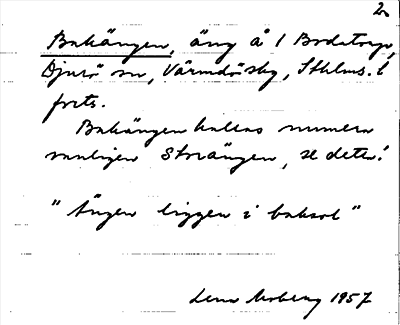 2.
Bakängen, äng å 1 Bodatorp,
Djurö sn, Värmdö sby, Sthlms. l
forts.
Bakängen kallas numera
vanligen Storängen, se detta!
"Ängen ligger i baksol"
Lena Moberg 1957